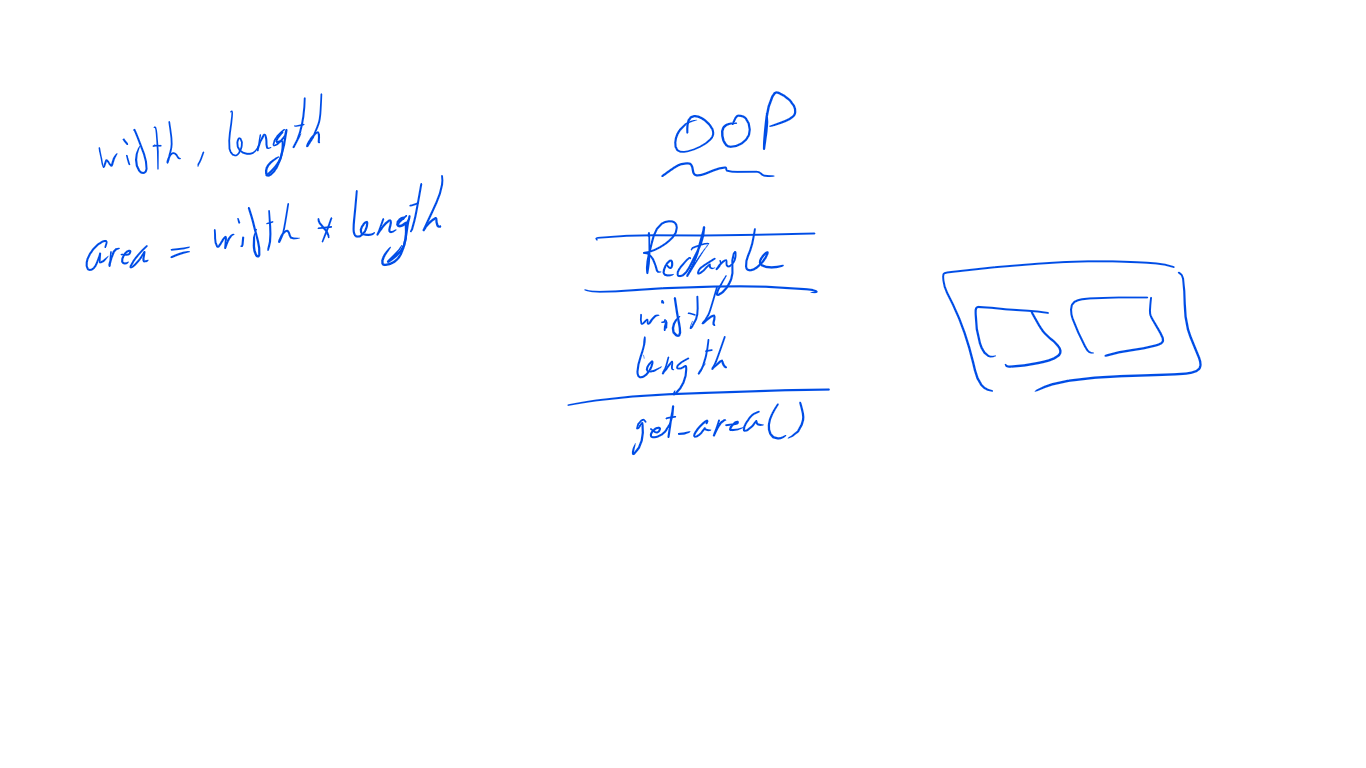 width, length
area = width * length
OOP
Rectangle
width
length
get_area()